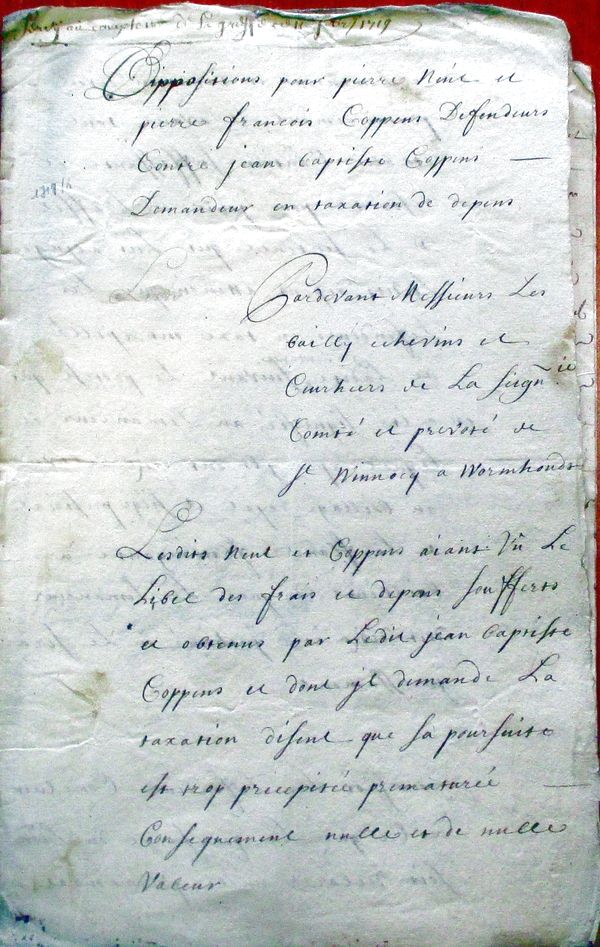 au comptoir de le greffe ce 11 1719
Oppositions pour pierre Neut et
pierre francois Coppens Defendeurs
Contre jean baptiste Coppens —
Demandeur en taxation de depens
Pardevant Messieurs Les
bailly echevins et
Cuerheers de La Seign^rie
Comté et prevoté de
S^t Winnocq a Wormhoudt
Lesdits Neut et Coppens aiant Vû Le
Libel des frais et depens soufferts
et obtenus par Ledit jean baptiste
Coppens et dont jl demande La
taxation disent que sa poursuite
est trop precepitée prematurée —
Consequement nulle et de nulle
Valeur